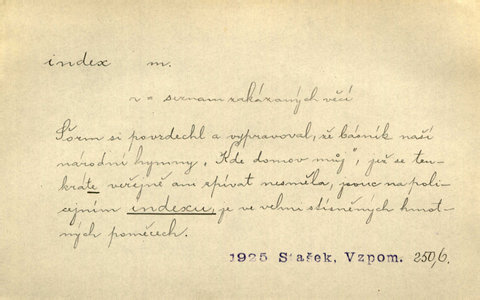 index m.
v = seznam zakázaných věcí
Šörm si povzdechl a vypravoval, že básník naší
národní hymny „Kde domov můj", jež se ten-
kráte veřejně ani zpívat nesměla, jsouc na poli-
cejním indexu, je ve velmi stísněných hmot-
ných poměcech.
1925 Stašek, Vzpom. 250,6.